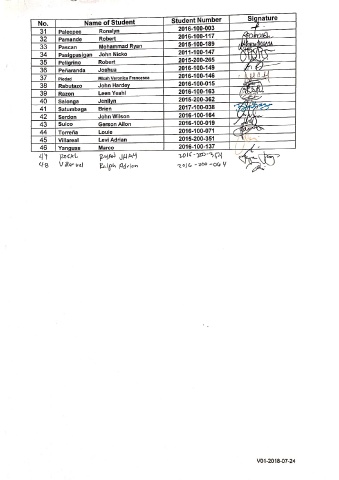 No. Name of Student Student Number Signature
31 Paleepes Ronalyn 2016-100-003
32 Pamande Robert 2016-100-117
33 Pascan Mohammad Ryan 2015-100-189
34 Pasigpasigan John Nicko 2011-100-147
35 Peligrino Robert 2015-200-265
36 Peñaranda Joshua 2016-100-149
37 Piedad Mizah Veronica Francesca 2016-100-146
38 Rabutazo John Harday 2016-100-015
39 Razon Lean Yeshl 2016-100-163
40 Salonga Jonllyn 2015-200-362
41 Satumbaga Brien 2017-100-038
42 Serdon John Wilson 2016-100-164
43 Suico Gerson Allon 2016-100-019
44 Torreña Louie 2016-100-071
45 Villareal Levi Adrian 2015-200-351
46 Yanguas Marco 2016-100-137
47 2015-200-354
48 Villareal Ralph Adrian 2016-200-064
V01-2018-07-24